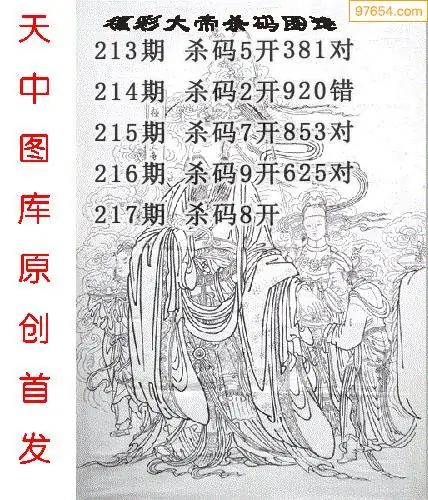 97654.com
福彩大帝杀码图迷
213期 杀码5开381对
214期 杀码2开920错
215期 杀码7开853对
216期 杀码9开625对
217期 杀码8开
天中图库原创首发